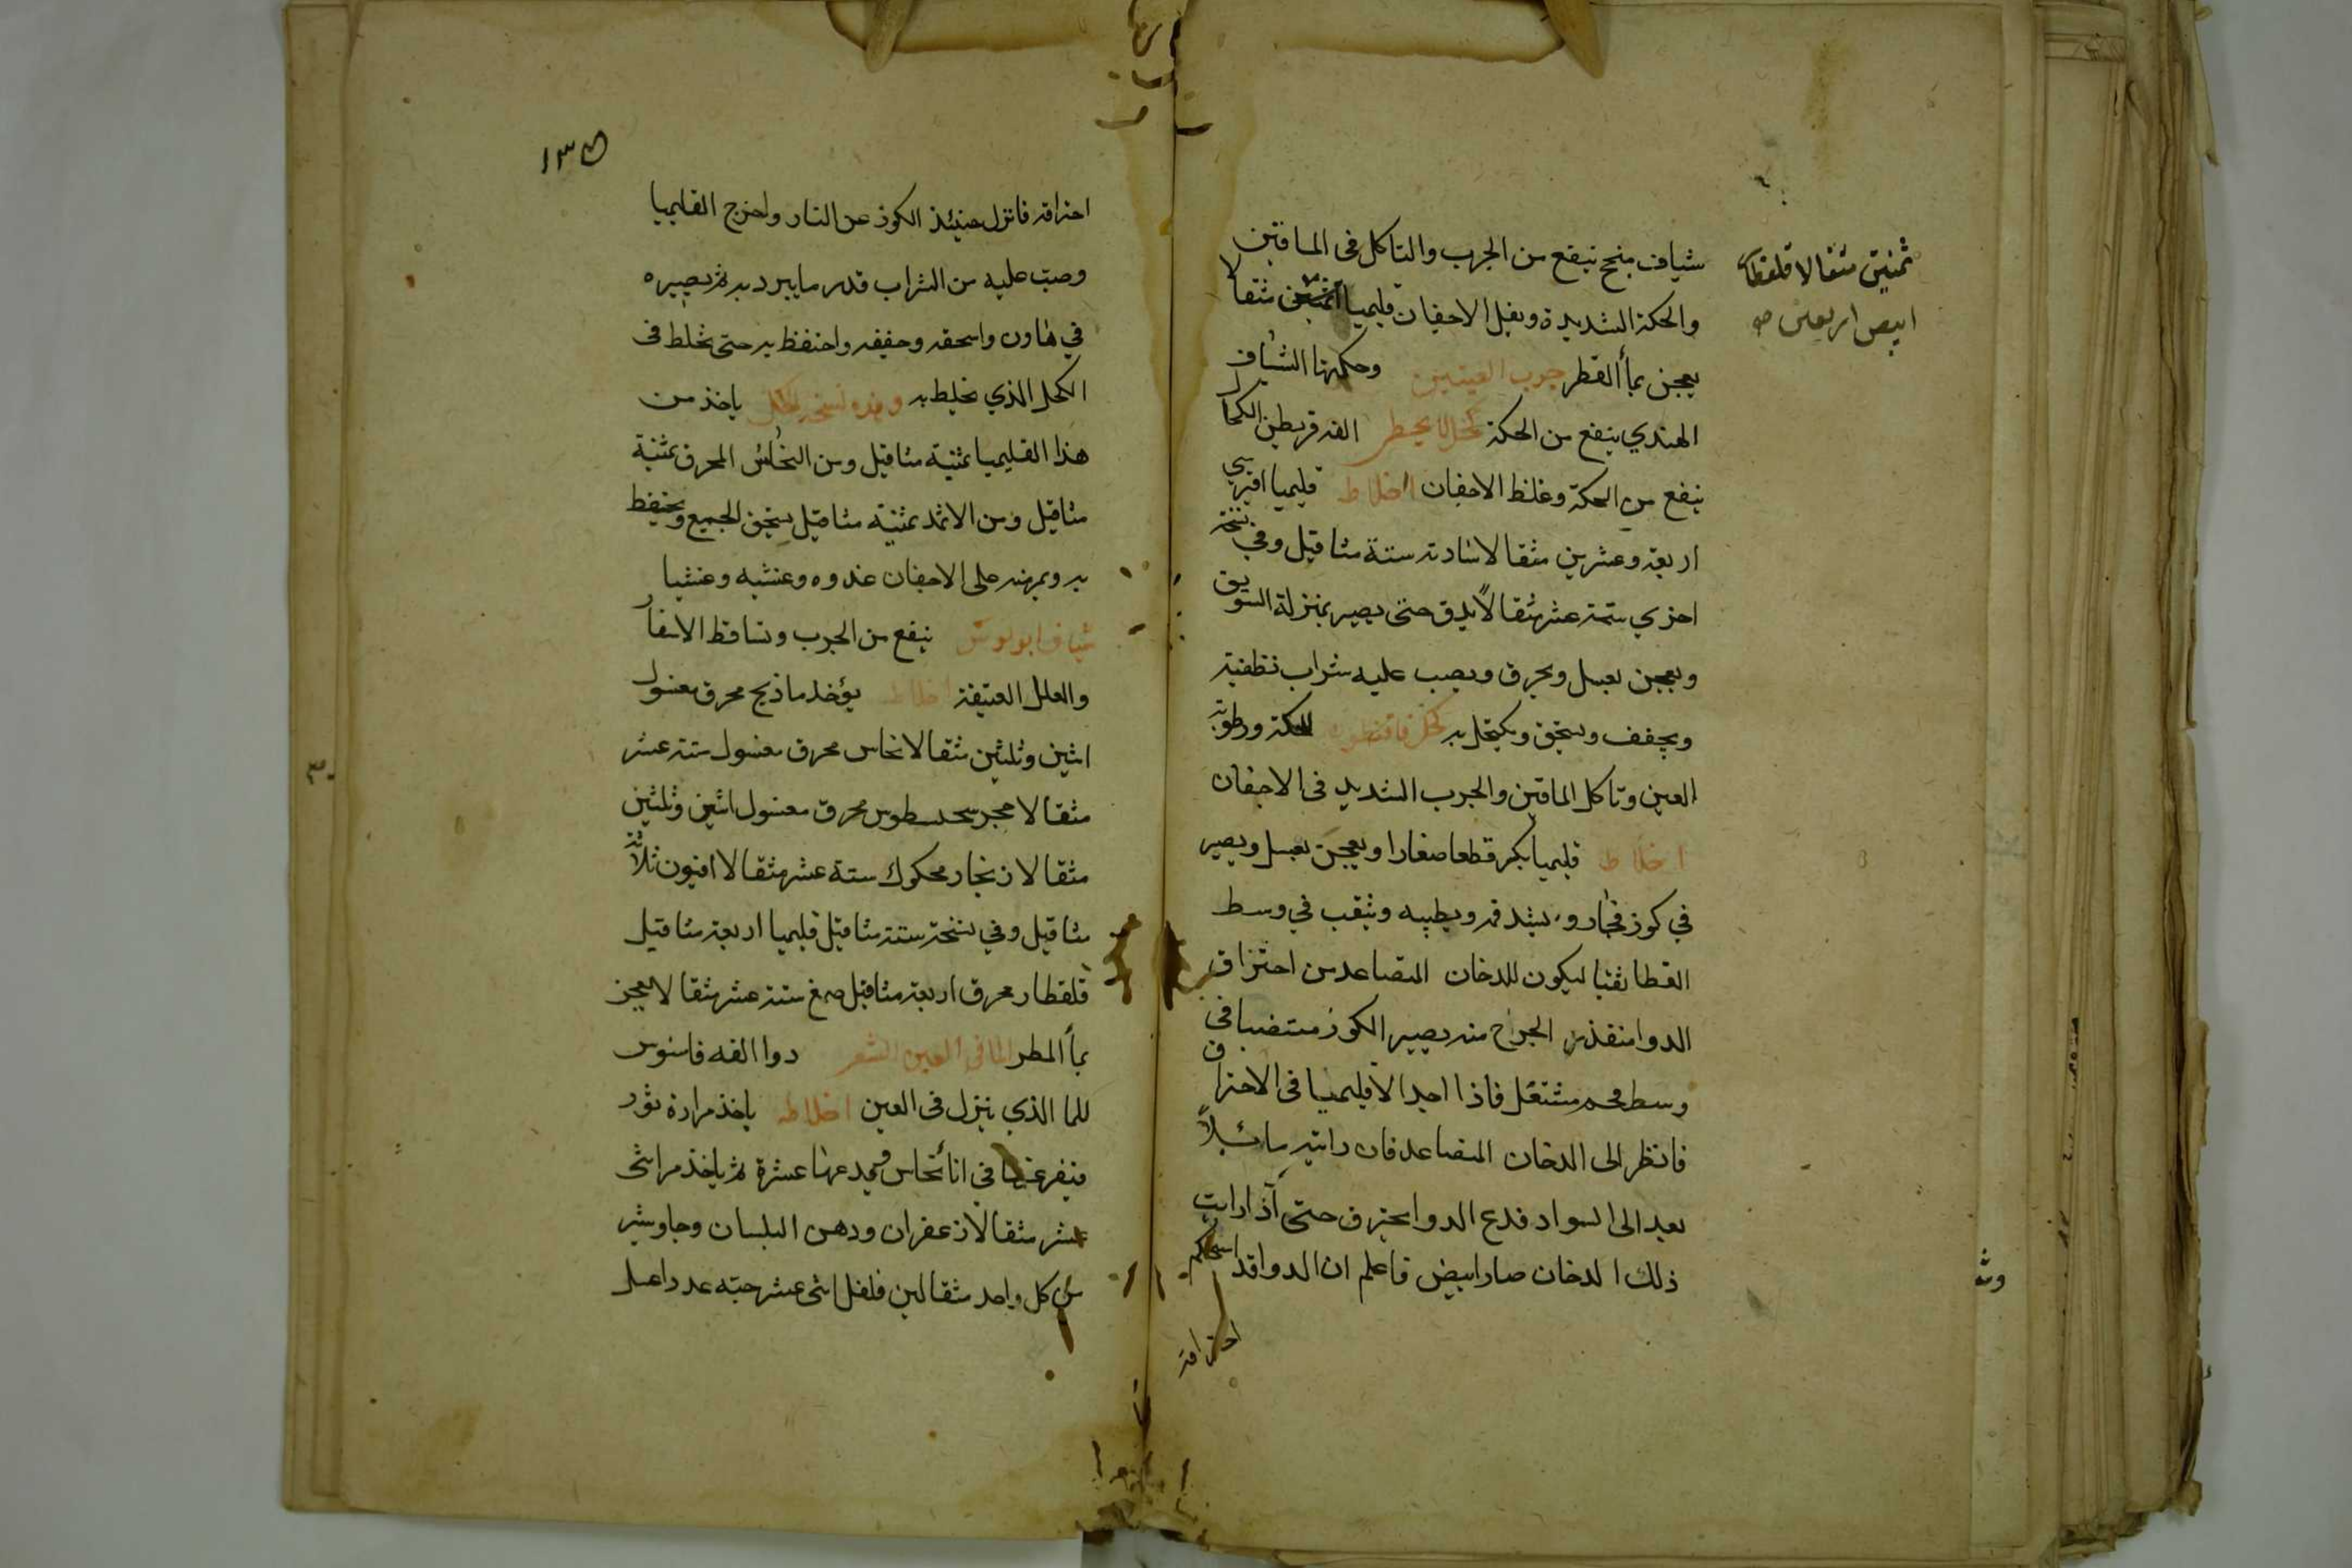 شياف بنج ينفع من الجرب والتاكل في الماقين
والحكة الشديدة وثقل الاجفان قليميا مثقالا
ثمنين مثقالا قلقطار
ابيض اربعين صح
يعجن بمأ القطر جرب العينين وحكتها الشياف
الهندي ينفع من الحكة كحل الفه الكحال
ينفع من الحكة وغلظ الاجفان اخلاط قليميا
اربعة وعشرين مثقالا شادنه ستة مثاقيل وفي نسخة
اخري ستة عشر مثقالاً يدق حتى يصير بمنزلة السويق
ويعجن بعسل ويحرق ويصب عليه شراب
ويجفف ويسحق ويكتحل به كحل للحكة ورطوبة
العين وتاكل الماقين والجرب الشديد في الاجفان
اخلاط قليميا يكسر قطعا صغارا ويعجن بعسل ويصير
في كوز فخار ويشد فمه ويطينه ويثقب في وسط
الغطا ثقبا ليكون للدخان المتصاعد من احتراق
الدوا منفذ الخراج منه يصير الكوز منتصبا في
وسط فحم مشتعل فاذا الاقليميا في الاحتراق
فانظر الى الدخان المتصاعد فان رايته مائلاً
بعد الى السواد فدع الدوا يحترق حتى اذا رايت
ذلك الدخان صار ابيض فاعلم ان الدوا قد استحكم
احتراقه
١٣٥
احتراقه فانزل حينئذ الكوز عن النار واخرج القليميا
وصب عليه من الشراب قدر ما يبرد به ثم يصيره
في هاون واسحقه وجففه واحتفظ به حتى تخلط في
الكحل الذي تخلط به وهذه نسخة الكحل ياخذ من
هذا القليميا ثمنية مثاقيل ومن النحاس المحرق ثمنية
مثاقيل ومن الاثمد ثمنية مثاقيل يسحق الجميع ويحتفظ
به ويمر منه على الاجفان غدوه وعشيه وعشيا
شياف ينفع من الجرب وتساقط الاشفار
والعلل العتيقة اخلاط يؤخذ محرق مغسول
اثنين وثلثين مثقالا نحاس محرق مغسول ستة عشر
مثقالا حجر محرق مغسول اثنين وثلثين
مثقالا زنجار محكوك ستة عشر مثقالا افيون ثلاثة
مثاقيل وفي نسخة ستة مثاقيل قليميا اربعة مثاقيل
قلقطار محرق اربعة مثاقيل صمغ ستة عشر مثقالا يعجن
بمأ المطر الماقي العين الشعر دوا الفه
للما الذي ينزل في العين اخلاطه ياخذ مرارة ثور
فيفرغها في انا نحاس عشرة ثم ياخذ مر اثنى
عشر مثقالا زعفران ودهن البلسان وجاوشير
من كل واحد مثقالين فلفل اثنى عشر حبه عدد اعسل
وث